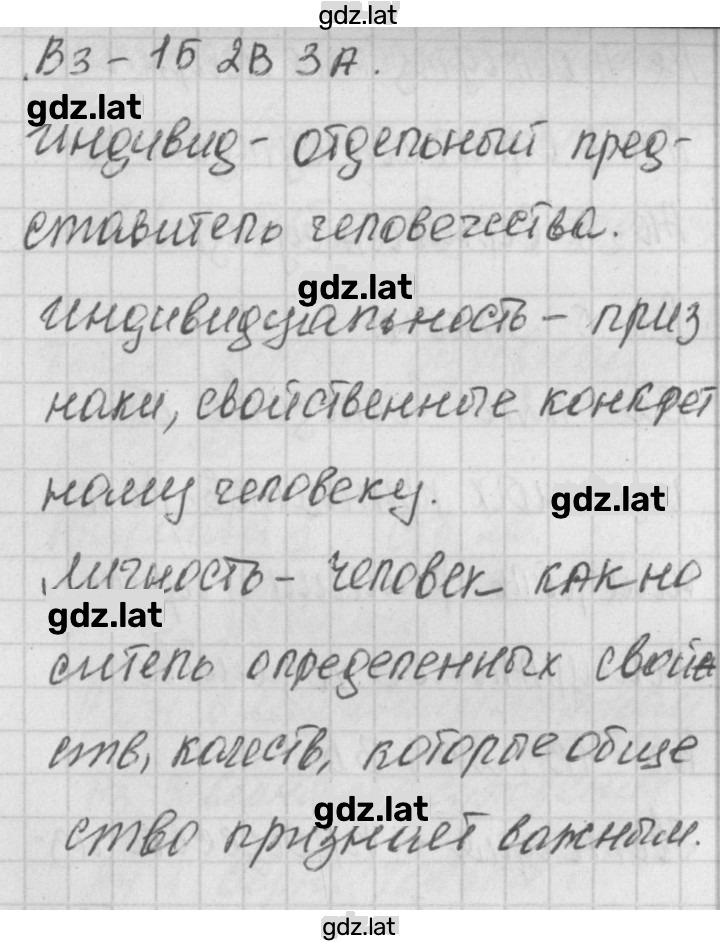 gdz.lat
В3 - 1Б 2В 3А.
gdz.lat
Индивид - отдельный пред-
ставитель человечества.
gdz.lat
Индивидуальность - приз
наки, свойственные конкрет
ному человеку.
gdz.lat
Личность - человек как но
gdz.lat
ситель определенных свой
ств, качеств, которые обще
gdz.lat
ство признает важным.
gdz.lat